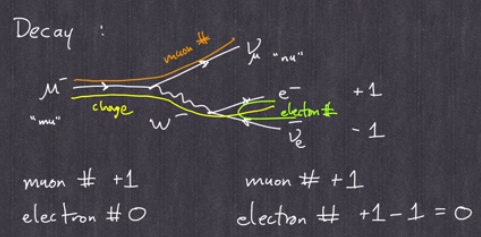 Decay :
muon #
νμ "nu"
μ⁻
"mu"
charge
W⁻
e⁻ +1
electron #
ν̄e -1
muon # +1
electron # 0
muon # +1
electron # +1 -1 = 0